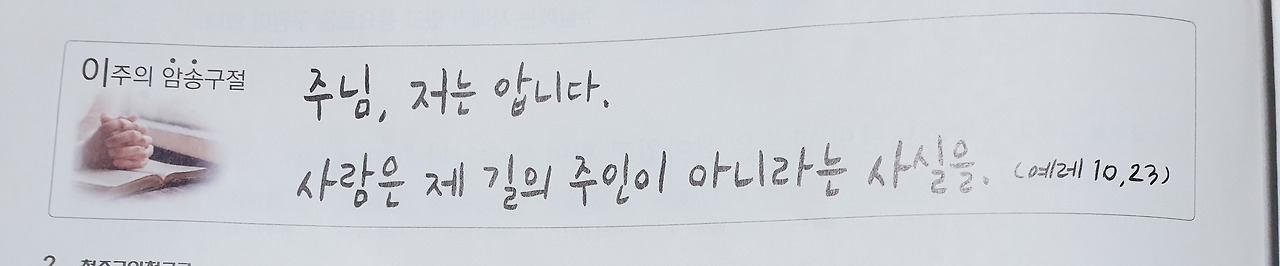 이주의 암송구절
주님, 저는 압니다.
사람은 제 길의 주인이 아니라는 사실을. (예레 10,23)
2